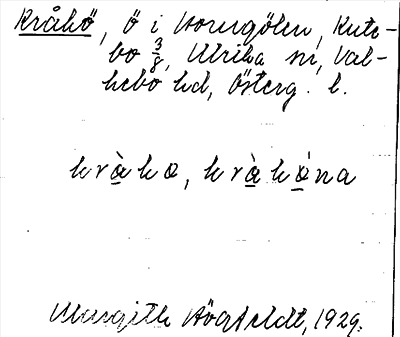 Kråkö, ö i Korngölen, Kute-
bo 3/8, Ulrika sn, Val-
kebo hd, Österg. l.
kràkø, kràkø̀na
Margith Högfeldt, 1929.